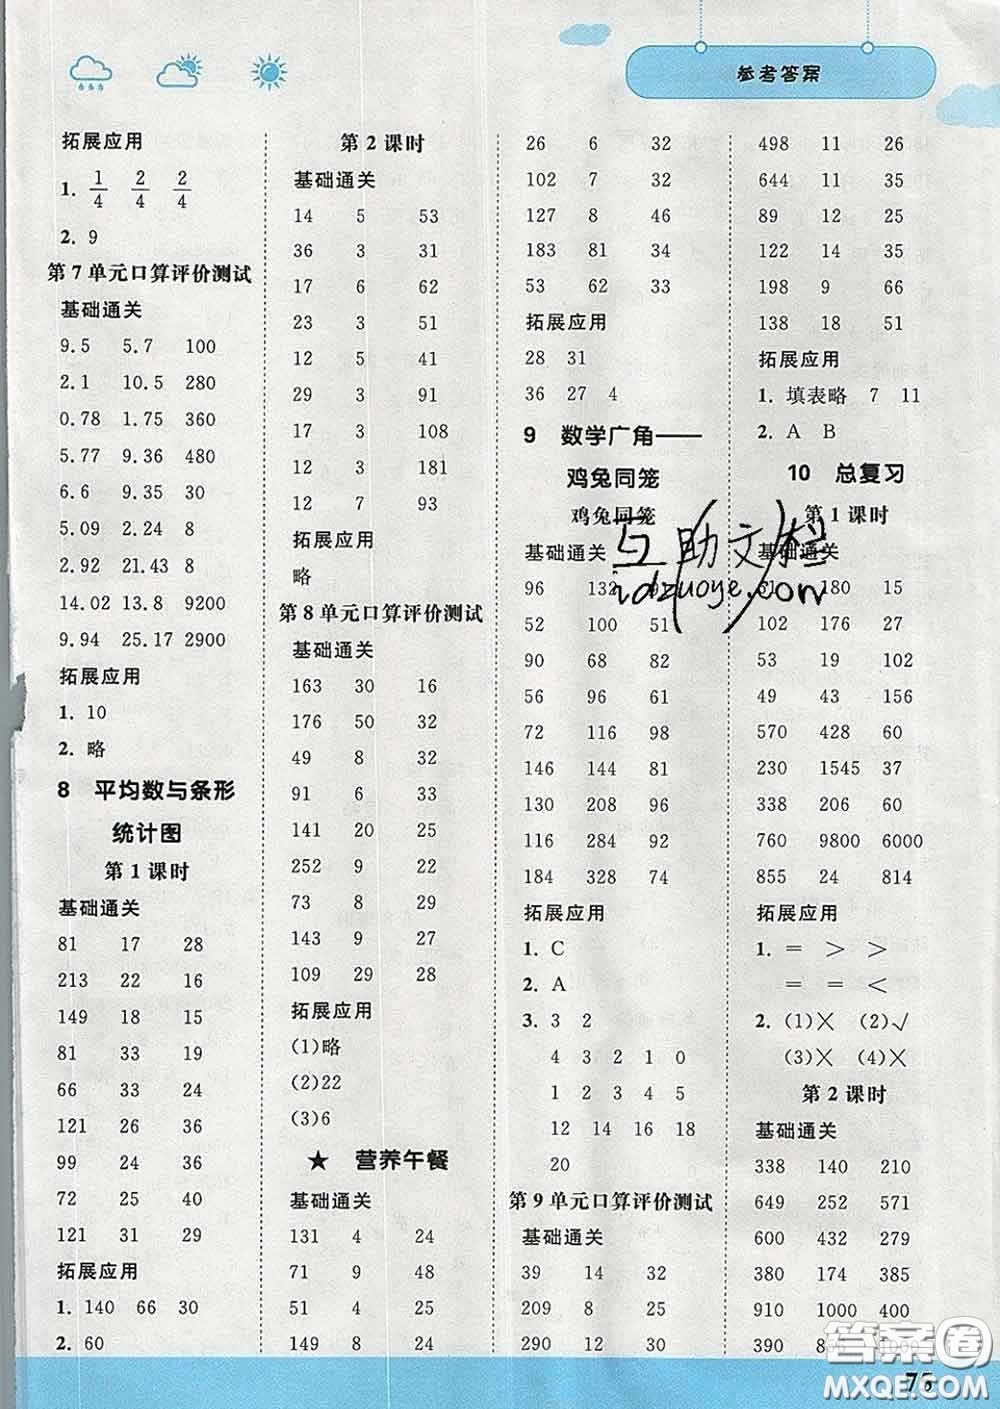 参考答案
拓展应用
1. 1/4 2/4 2/4
2. 9
第7单元口算评价测试
基础通关
9.5 5.7 100
2.1 10.5 280
0.78 1.75 360
5.77 9.36 480
6.6 9.35 30
5.09 2.24 8
2.92 21.43 8
14.02 13.8 9200
9.94 25.17 2900
拓展应用
1. 10
2. 略
8 平均数与条形
统计图
第1课时
基础通关
81 17 28
213 22 16
149 18 15
81 33 19
66 33 24
121 26 36
99 24 36
72 25 25
121 31 29
拓展应用
1. 140 66 30
2. 60
第2课时
基础通关
14 5 53
36 3 31
17 6 62
23 3 51
12 5 41
29 3 91
17 3 108
12 3 181
12 7 93
拓展应用
略
第8单元口算评价测试
基础通关
163 30 16
176 50 32
49 8 32
91 6 33
141 20 25
252 9 22
73 8 29
143 9 27
109 29 28
拓展应用
(1)略
(2)22
(3)6
★ 营养午餐
基础通关
131 4 24
71 9 48
51 4 25
149 8 24
26 6 32
102 7 32
127 8 46
183 81 34
53 62 33
拓展应用
28 31
36 27 4
9 数学广角——
鸡兔同笼
鸡兔同笼
基础通关
96 132
52 100 51
90 68 82
56 96 61
72 116 98
146 144 88
130 208 96
116 292 84
184 328 74
拓展应用
1. C
2. A
3. 3 2
4 3 2 1 0
1 2 3 4 5
12 14 16 18
20
第9单元口算评价测试
基础通关
39 14 32
209 8 25
290 12 30
498 11 26
644 11 35
89 12 25
122 14 35
198 9 66
138 18 51
拓展应用
1. 填表略 7 11
2. A B
10 总复习
第1课时
基础通关
180 15
102 176 27
53 19 102
49 43 156
570 428 60
230 1545 37
338 206 60
760 9800 6000
855 24 814
拓展应用
1. = > >
= = <
2. (1)× (2)√
(3)× (4)×
第2课时
基础通关
338 140 210
649 252 571
600 432 279
380 174 385
910 1000 400
390
互助文档
答案圈
MXQE.COM